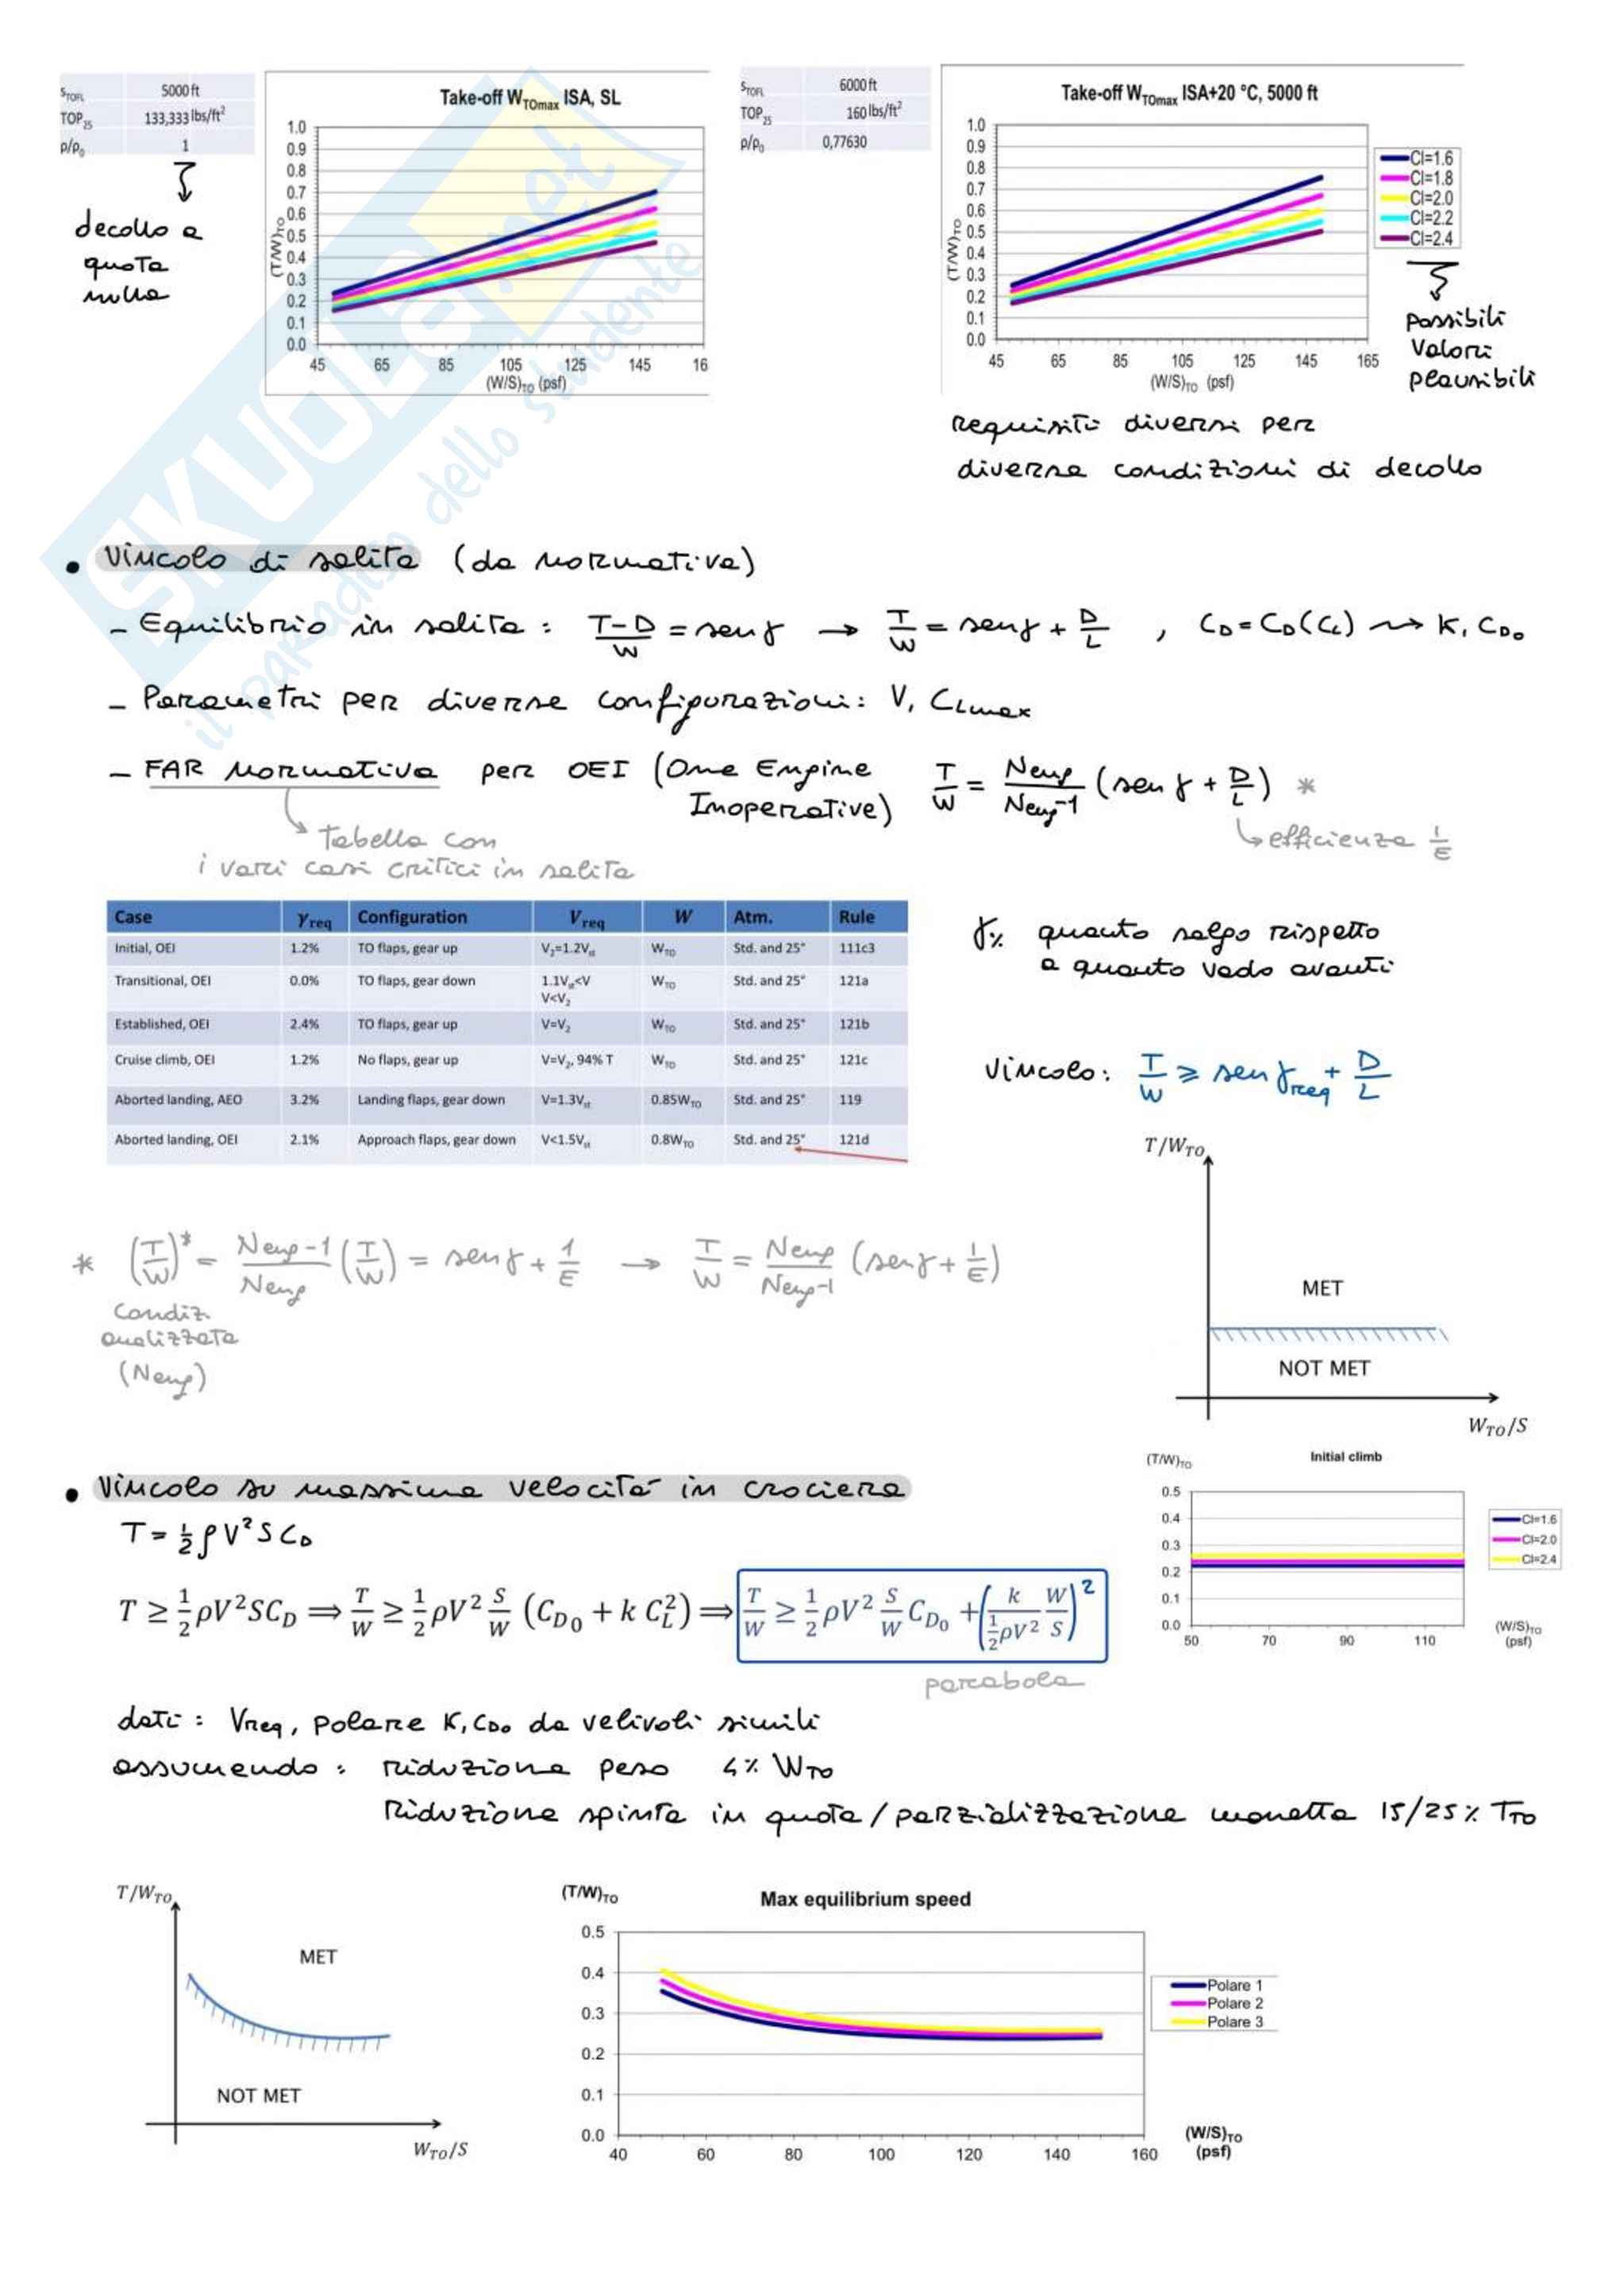 s_TOFL 5000 ft
TOP_25 133,333 lbs/ft²
ρ/ρ_0 1
decollo a
quota
nulla
Take-off W_TOmax ISA, SL
(T/W)_TO
1.0
0.9
0.8
0.7
0.6
0.5
0.4
0.3
0.2
0.1
0.0
45 65 85 105 125 145 16
(W/S)_TO (psf)
s_TOFL 6000 ft
TOP_25 160 lbs/ft²
ρ/ρ_0 0,77630
Take-off W_TOmax ISA+20 °C, 5000 ft
(T/W)_TO
1.0
0.9
0.8
0.7
0.6
0.5
0.4
0.3
0.2
0.1
0.0
45 65 85 105 125 145 165
(W/S)_TO (psf)
Cl=1.6
Cl=1.8
Cl=2.0
Cl=2.2
Cl=2.4
possibili
valori
plausibili
requisiti diversi per
diverse condizioni di decollo
SKUOLA.net
il paradiso dello studente
• Vincolo di salita (da normativa)
- Equilibrio in salita : (T-D)/W = senγ → T/W = senγ + D/L , C_D = C_D(C_L) ⇝ K, C_D0
- Parametri per diverse configurazioni: V, C_Lmax
- FAR normativa per OEI (One Engine Inoperative) T/W = Neng/(Neng-1) (senγ + D/L) *
↳ efficienza 1/E
tabella con
i vari casi critici in salita
Case γ_req Configuration V_req W Atm. Rule
Initial, OEI 1.2% TO flaps, gear up V_2=1.2V_st W_TO Std. and 25° 111c3
Transitional, OEI 0.0% TO flaps, gear down 1.1V_st<V V<V_2 W_TO Std. and 25° 121a
Established, OEI 2.4% TO flaps, gear up V=V_2 W_TO Std. and 25° 121b
Cruise climb, OEI 1.2% No flaps, gear up V=V_2, 94% T W_TO Std. and 25° 121c
Aborted landing, AEO 3.2% Landing flaps, gear down V=1.3V_st 0.85W_TO Std. and 25° 119
Aborted landing, OEI 2.1% Approach flaps, gear down V<1.5V_st 0.8W_TO Std. and 25° 121d
γ% quanto salgo rispetto
a quanto vado avanti
vincolo: T/W ≥ senγ_req + D/L
T/W_TO
MET
NOT MET
W_TO/S
* (T/W)* = (Neng-1)/Neng (T/W) = senγ + 1/E → T/W = Neng/(Neng-1) (senγ + 1/E)
condiz.
analizzata
(Neng)
(T/W)_TO
Initial climb
0.5
0.4
0.3
0.2
0.1
0.0
50 70 90 110
(W/S)_TO
(psf)
Cl=1.6
Cl=2.0
Cl=2.4
• Vincolo su massima velocità in crociera
T = ½ρV²SC_D
T ≥ ½ρV²SC_D ⟹ T/W ≥ ½ρV² S/W (C_D0 + k C_L²) ⟹ T/W ≥ ½ρV² S/W C_D0 + (k/(½ρV²) W/S)²
parabola
dati : Vreq, polare K, C_D0 da velivoli simili
assumendo : riduzione peso 4% W_TO
Riduzione spinta in quota / parzializzazione manetta 15/25% T_TO
T/W_TO
MET
NOT MET
W_TO/S
(T/W)_TO
Max equilibrium speed
0.5
0.4
0.3
0.2
0.1
0.0
40 60 80 100 120 140 160
(W/S)_TO
(psf)
Polare 1
Polare 2
Polare 3